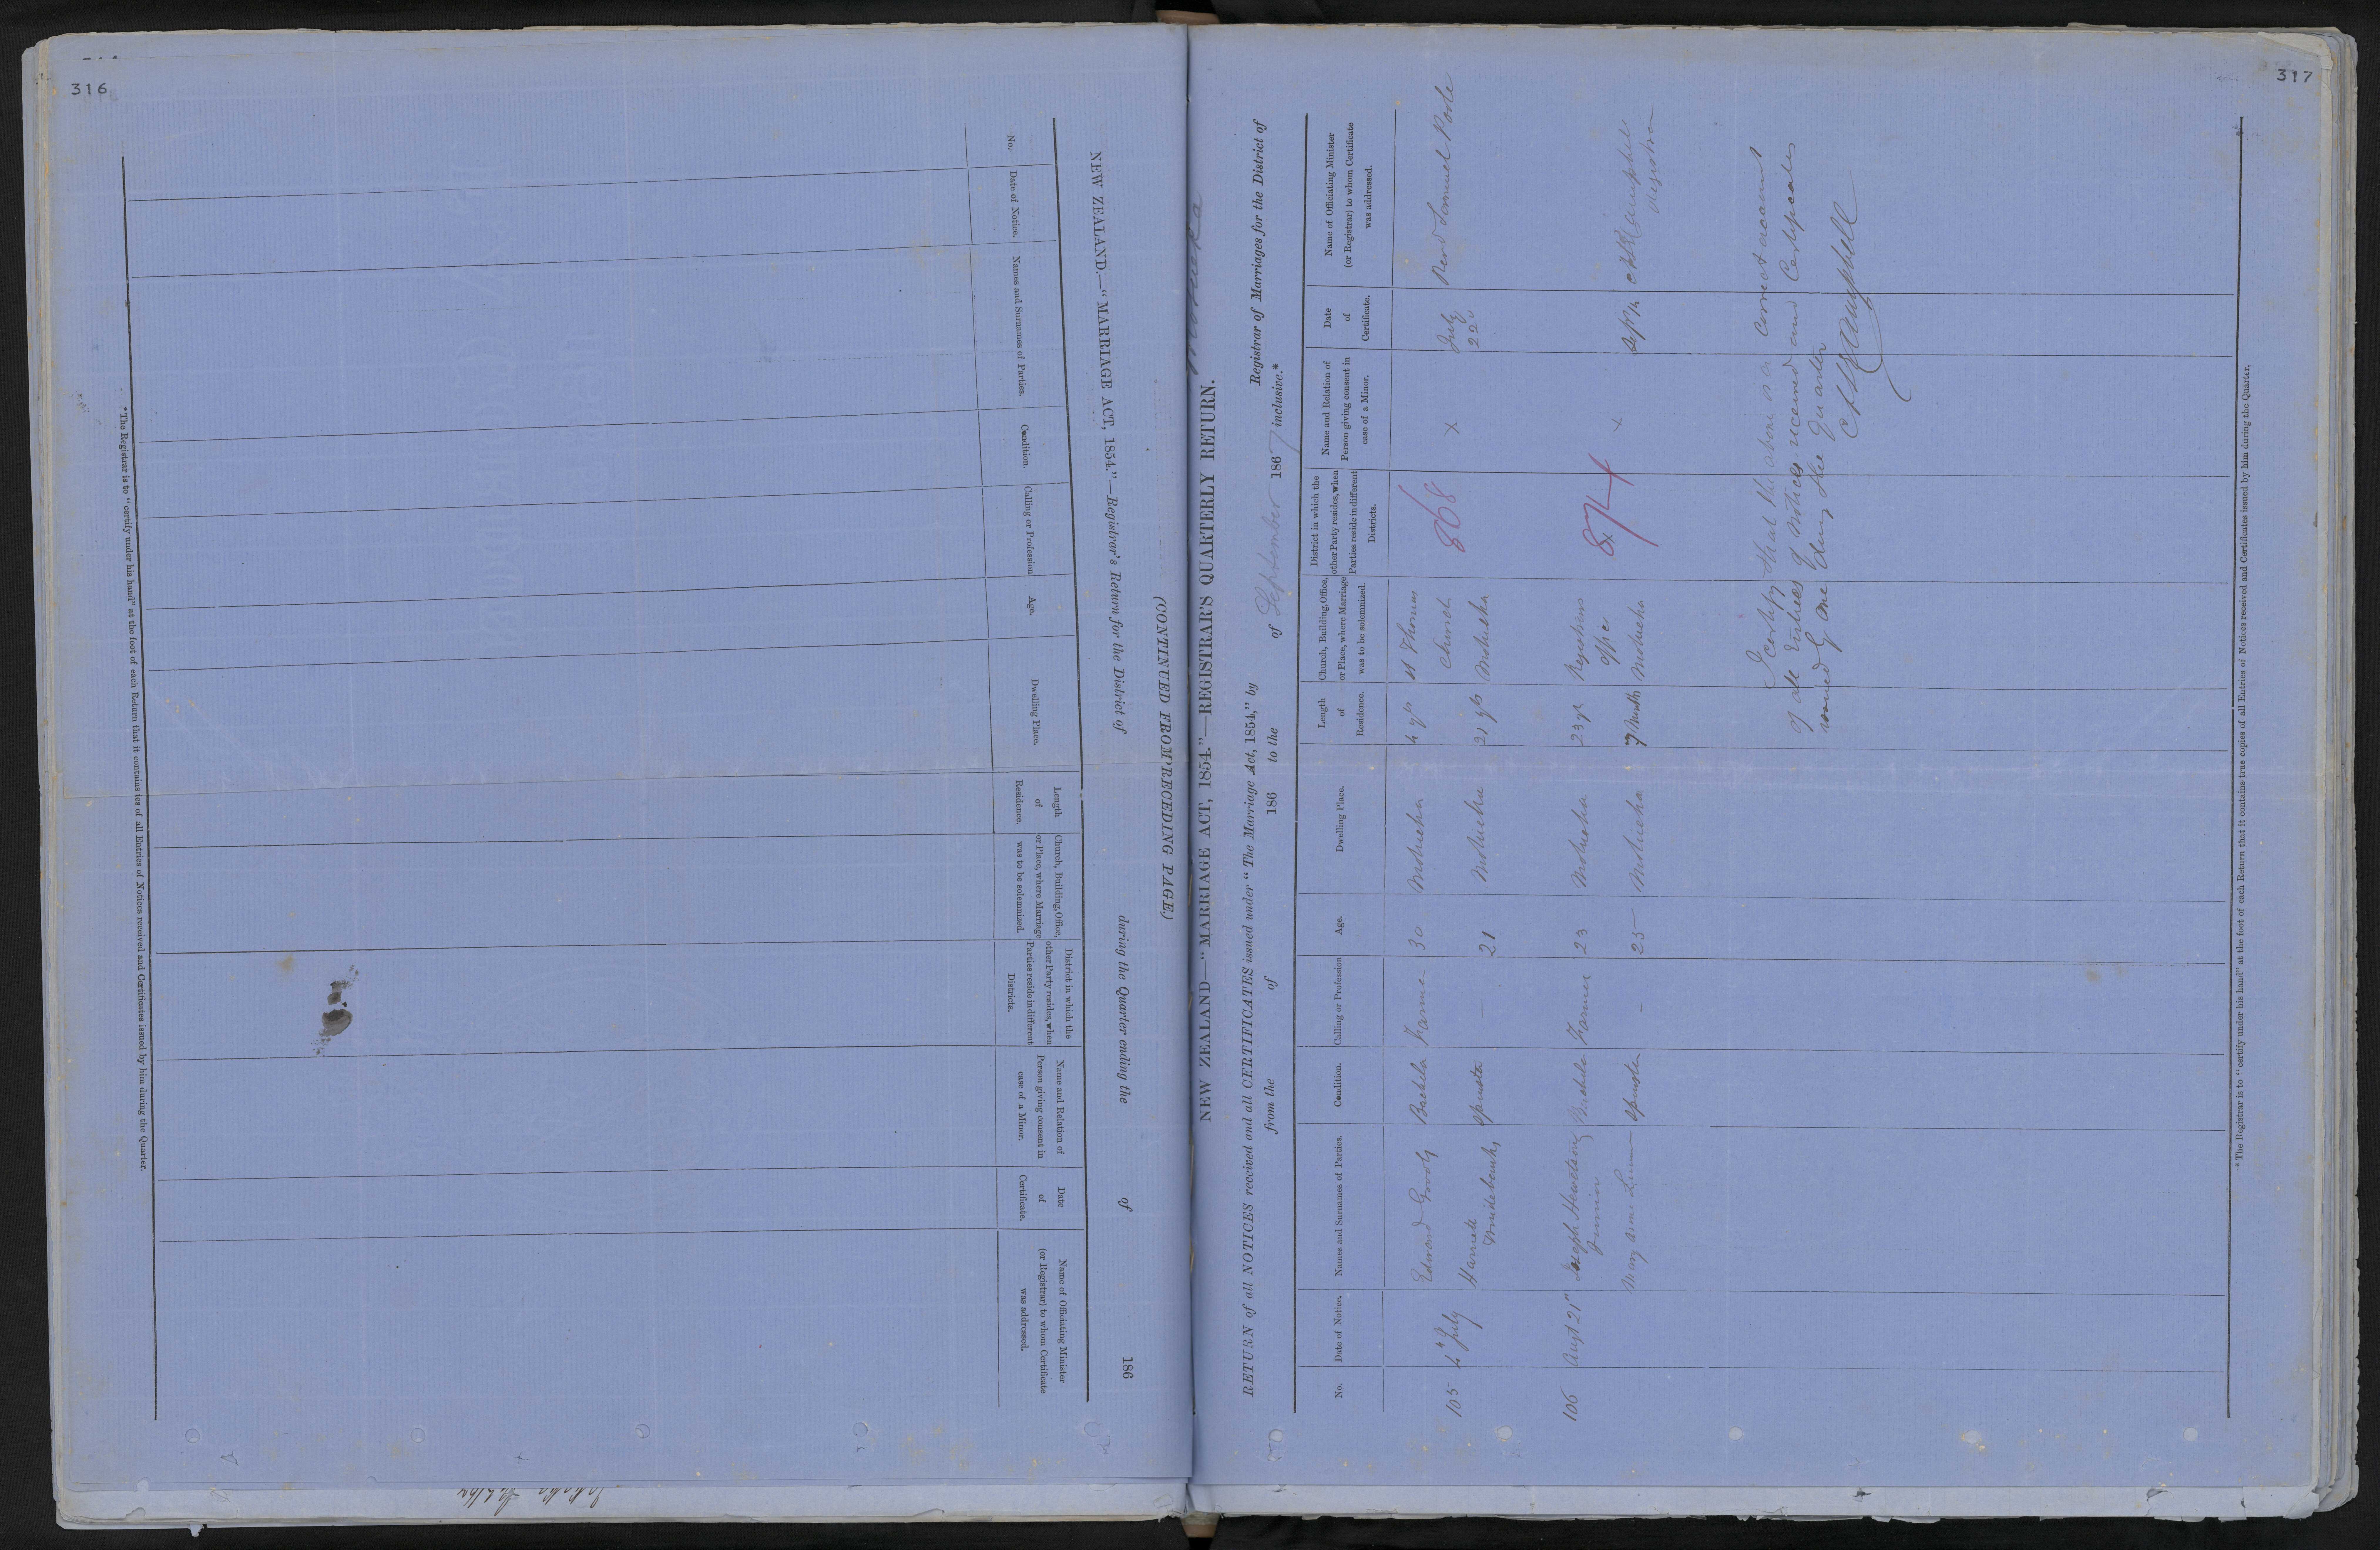 316
NEW ZEALAND.—"MARRIAGE ACT, 1854."—Registrar's Return for the District of during the Quarter ending the of 186
(CONTINUED FROM PRECEDING PAGE)
No.
Date of Notice.
Names and Surnames of Parties.
Condition.
Calling or Profession
Age.
Dwelling Place.
Length
of
Residence.
Church, Building, Office,
or Place, where Marriage
was to be solemnized.
District in which the
other Party resides, when
Parties reside in different
Districts.
Name and Relation of
Person giving consent in
case of a Minor.
Date
of
Certificate.
Name of Officiating Minister
(or Registrar) to whom Certificate
was addressed.
317
Motueka
NEW ZEALAND—"MARRIAGE ACT, 1854."—REGISTRAR'S QUARTERLY RETURN.
RETURN of all NOTICES received and all CERTIFICATES issued under "The Marriage Act, 1854," by Registrar of Marriages for the District of
from the of 186 to the of September 1867 inclusive.*
No.
Date of Notice.
Names and Surnames of Parties.
Condition.
Calling or Profession
Age.
Dwelling Place.
Length
of
Residence.
Church, Building, Office,
or Place, where Marriage
was to be solemnized.
District in which the
other Party resides, when
Parties reside in different
Districts.
Name and Relation of
Person giving consent in
case of a Minor.
Date
of
Certificate.
Name of Officiating Minister
(or Registrar) to whom Certificate
was addressed.
Edmond Bachelor Farmer 30 Motueka 4 yrs St Thomas
105 4th July 868 X July Revd Samuel Poole
Harriett Spinster — 21 Motueka 21 yrs Church Motueka 22
106 Augt 21st Joseph Junior Bachelor Farmer 23 Motueka 23 yr Registrars Office 874
Mary Anne Spinster - 25 Motueka 7 Months Motueka x Sep 14 Campbell
Registrar
I certify that the above is a Correct account
of all Entries of Notices received and Certificates
issued by me during the Quarter
Campbell
*The Registrar is to "certify under his hand" at the foot of each Return that it contains true copies of all Entries of Notices received and Certificates issued by him during the Quarter.